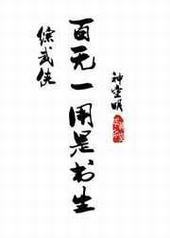 综武侠
百无一用是书生
神堂明